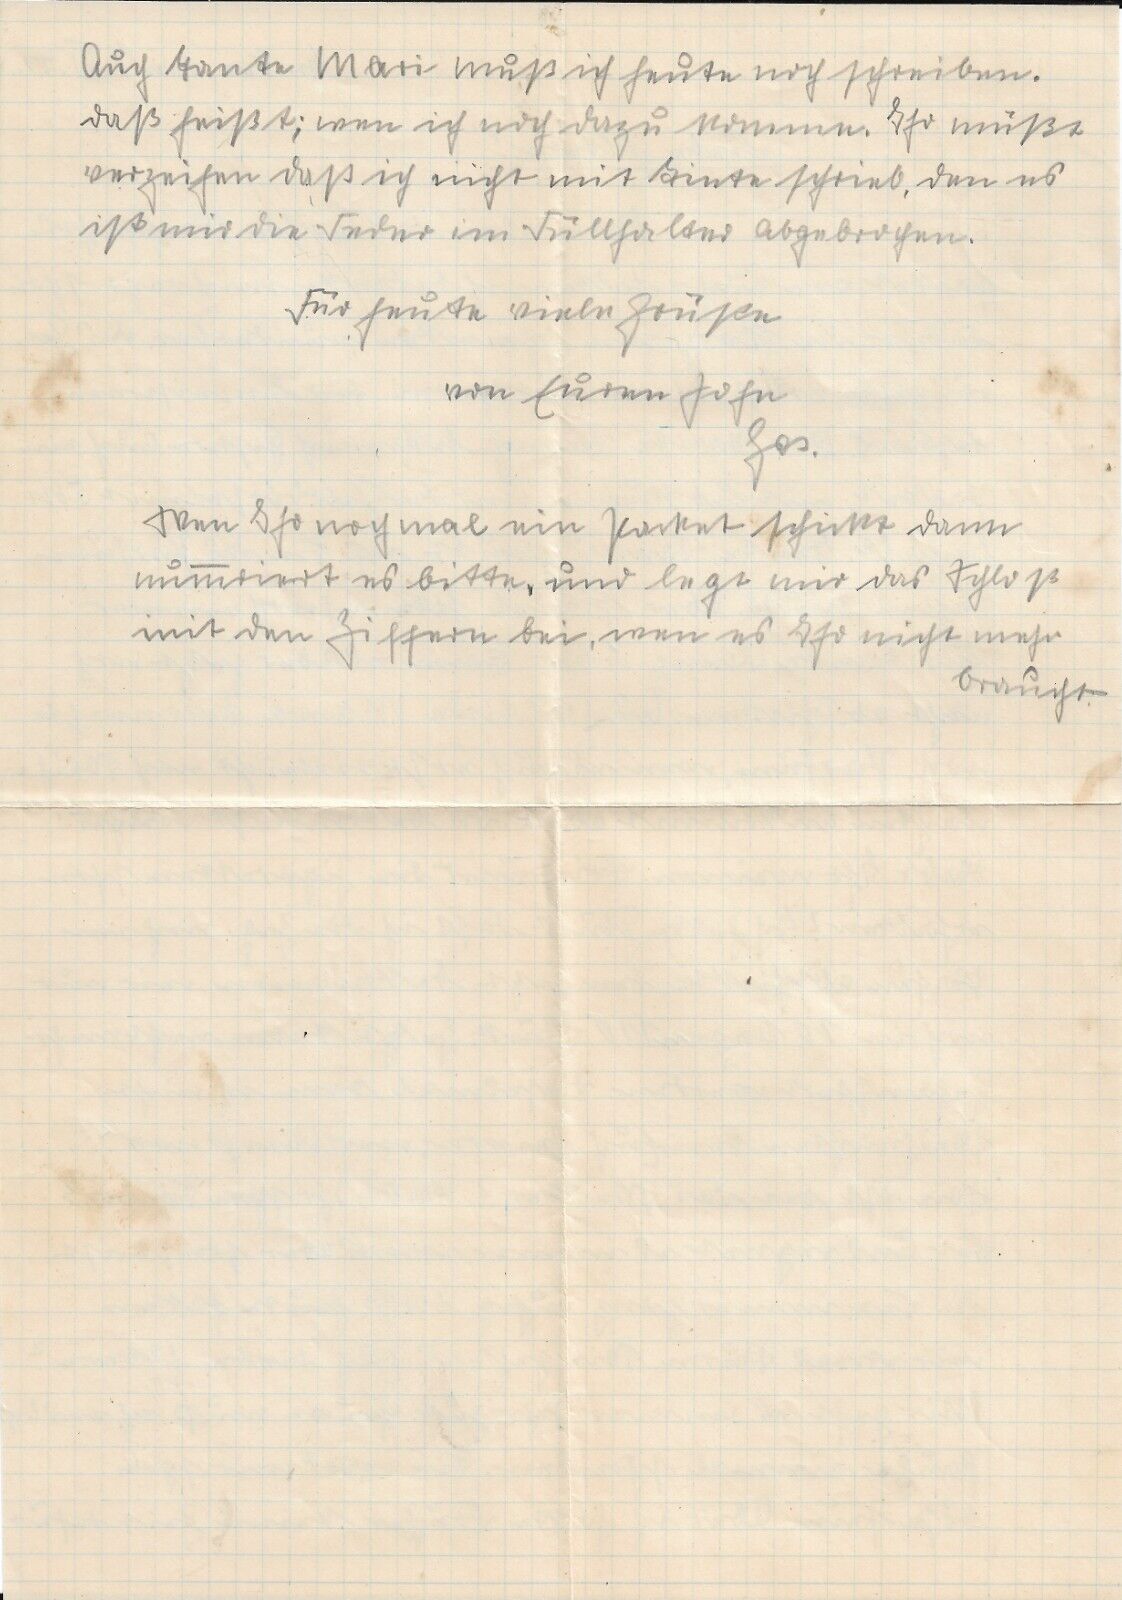 Auch Tante Mari muß ich heute noch schreiben.
daß heißt; wen ich noch dazu komme. Ihr müßt
verzeihen daß ich nicht mit Tinte schrieb, den es
ist mir die Feder im Füllhalter abgebrochen.
Für heute viele Grüße
von Euren Sohn
Wen Ihr nochmal ein Packet schickt dann
nummriert es bitte, und legt mir das Schloß
mit den Ziffern bei, wen es Ihr nicht mehr
braucht.